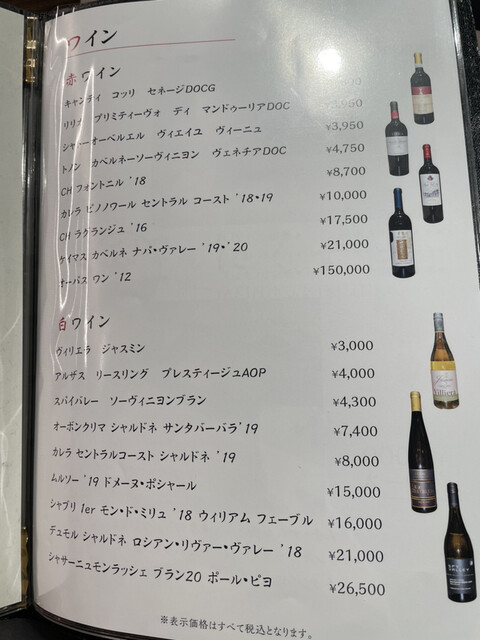 ワイン
赤ワイン
キャンティ コッリ セネージDOCG
プリミティーヴォ ディ マンドゥーリアDOC ,950
シャトーオーベルエル ヴィエイユ ヴィーニュ ¥3,950
トノン カベルネーソーヴィニヨン ヴェネチアDOC ¥4,750
CH フォントニル '18 ¥8,700
カレラ ピノノワール セントラル コースト '18・'19 ¥10,000
CH ラグランジュ '16 ¥17,500
ケイマス カベルネ ナパ・ヴァレー '19・'20 ¥21,000
オーパス ワン '12 ¥150,000
白ワイン
ヴィリエラ ジャスミン ¥3,000
アルザス リースリング プレスティージュAOP ¥4,000
スパイバレー ソーヴィニヨンブラン ¥4,300
オーボンクリマ シャルドネ サンタバーバラ'19 ¥7,400
カレラ セントラルコースト シャルドネ '19 ¥8,000
ムルソー '19 ドメーヌ・ポシャール ¥15,000
シャブリ 1er モン・ド・ミリュ '18 ウィリアム フェーブル ¥16,000
デュモル シャルドネ ロシアン・リヴァー・ヴァレー '18 ¥21,000
シャサーニュモンラッシェ ブラン20 ポール・ピヨ ¥26,500
※表示価格はすべて税込となります。